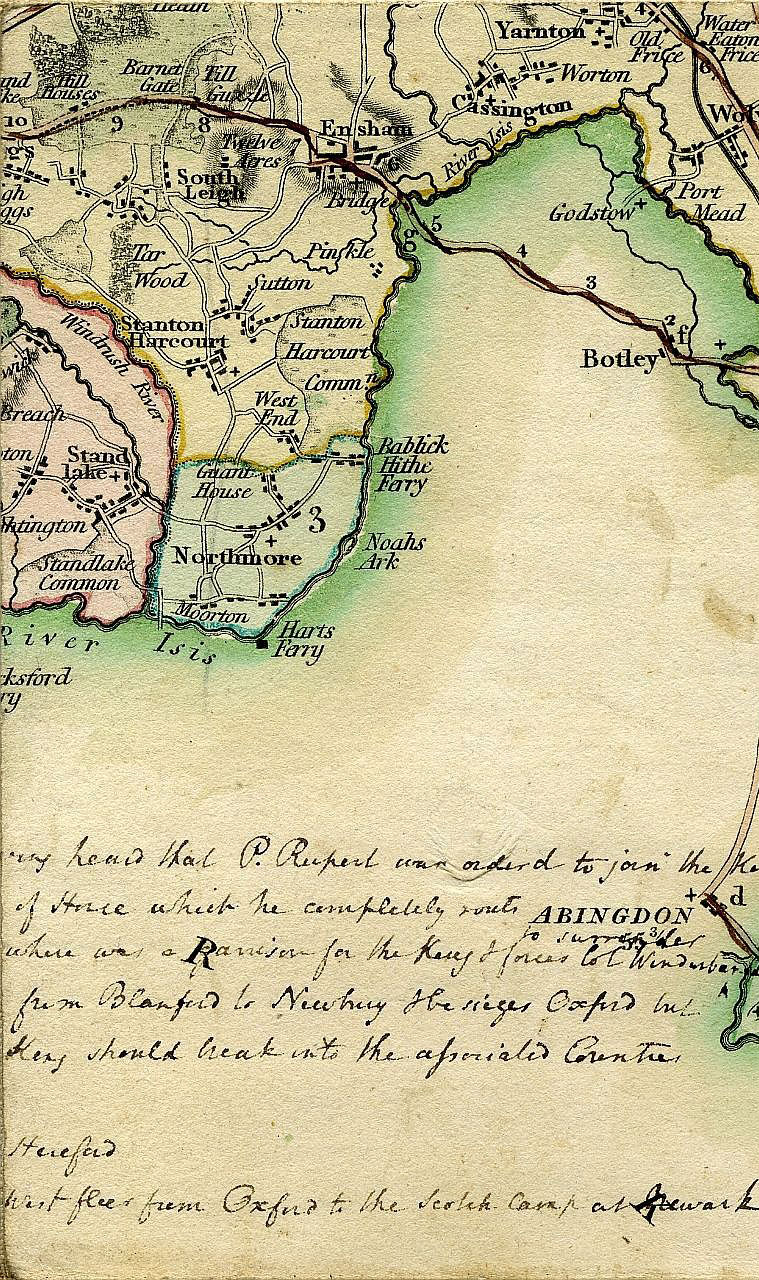 Heath
Yarnton
4
Water
Eaton
Old
Frice
Frice
6
Worton
Cassington
Wol
Barnet
Gate
Till
Hill
Houses
10
9
8
7
Ensham
Twelve
Acres
River Isis
South
Leigh
Bridge
Port
Mead
Godstow
5
g
4
3
2
f
Botley
Pinkle
Tar
Wood
Sutton
Stanton
Harcourt
Stanton
Harcourt
Comm.n
Windrush River
Breach
West
End
Bablick
Hithe
Ferry
Stand
lake
Giant
House
3
Northmore
Noahs
Ark
Standlake
Common
Moorton
Harts
Ferry
River Isis
cksford
ry
heard that P. Rupert was orderd to join the Ke
of Horse which he completely routs
ABINGDON
d
to surrender
where was a Garrison for the Kings forces Col
from Blanford to Newbury & besieges Oxford but
King should break into the associated Counties
Hereford
flees from Oxford to the Scotch Camp at Newark